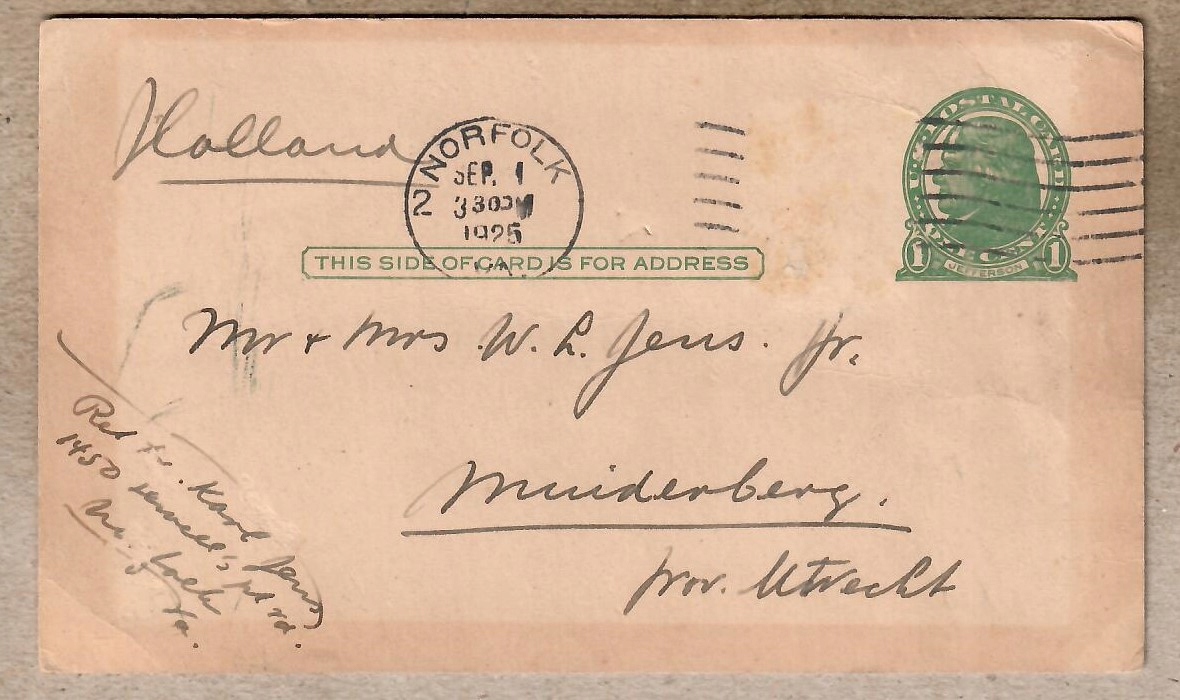 Holland
2 NORFOLK
SEP. 1
3 30 PM
1925
VA.
U.S. POSTAL CARD
ONE CENT
1 JEFFERSON 1
THIS SIDE OF CARD IS FOR ADDRESS
Mr + Mrs W. L. Jens. Jr.
Muiderberg.
prov. Utrecht
Karl Jens
1450 pt rd.
Va.